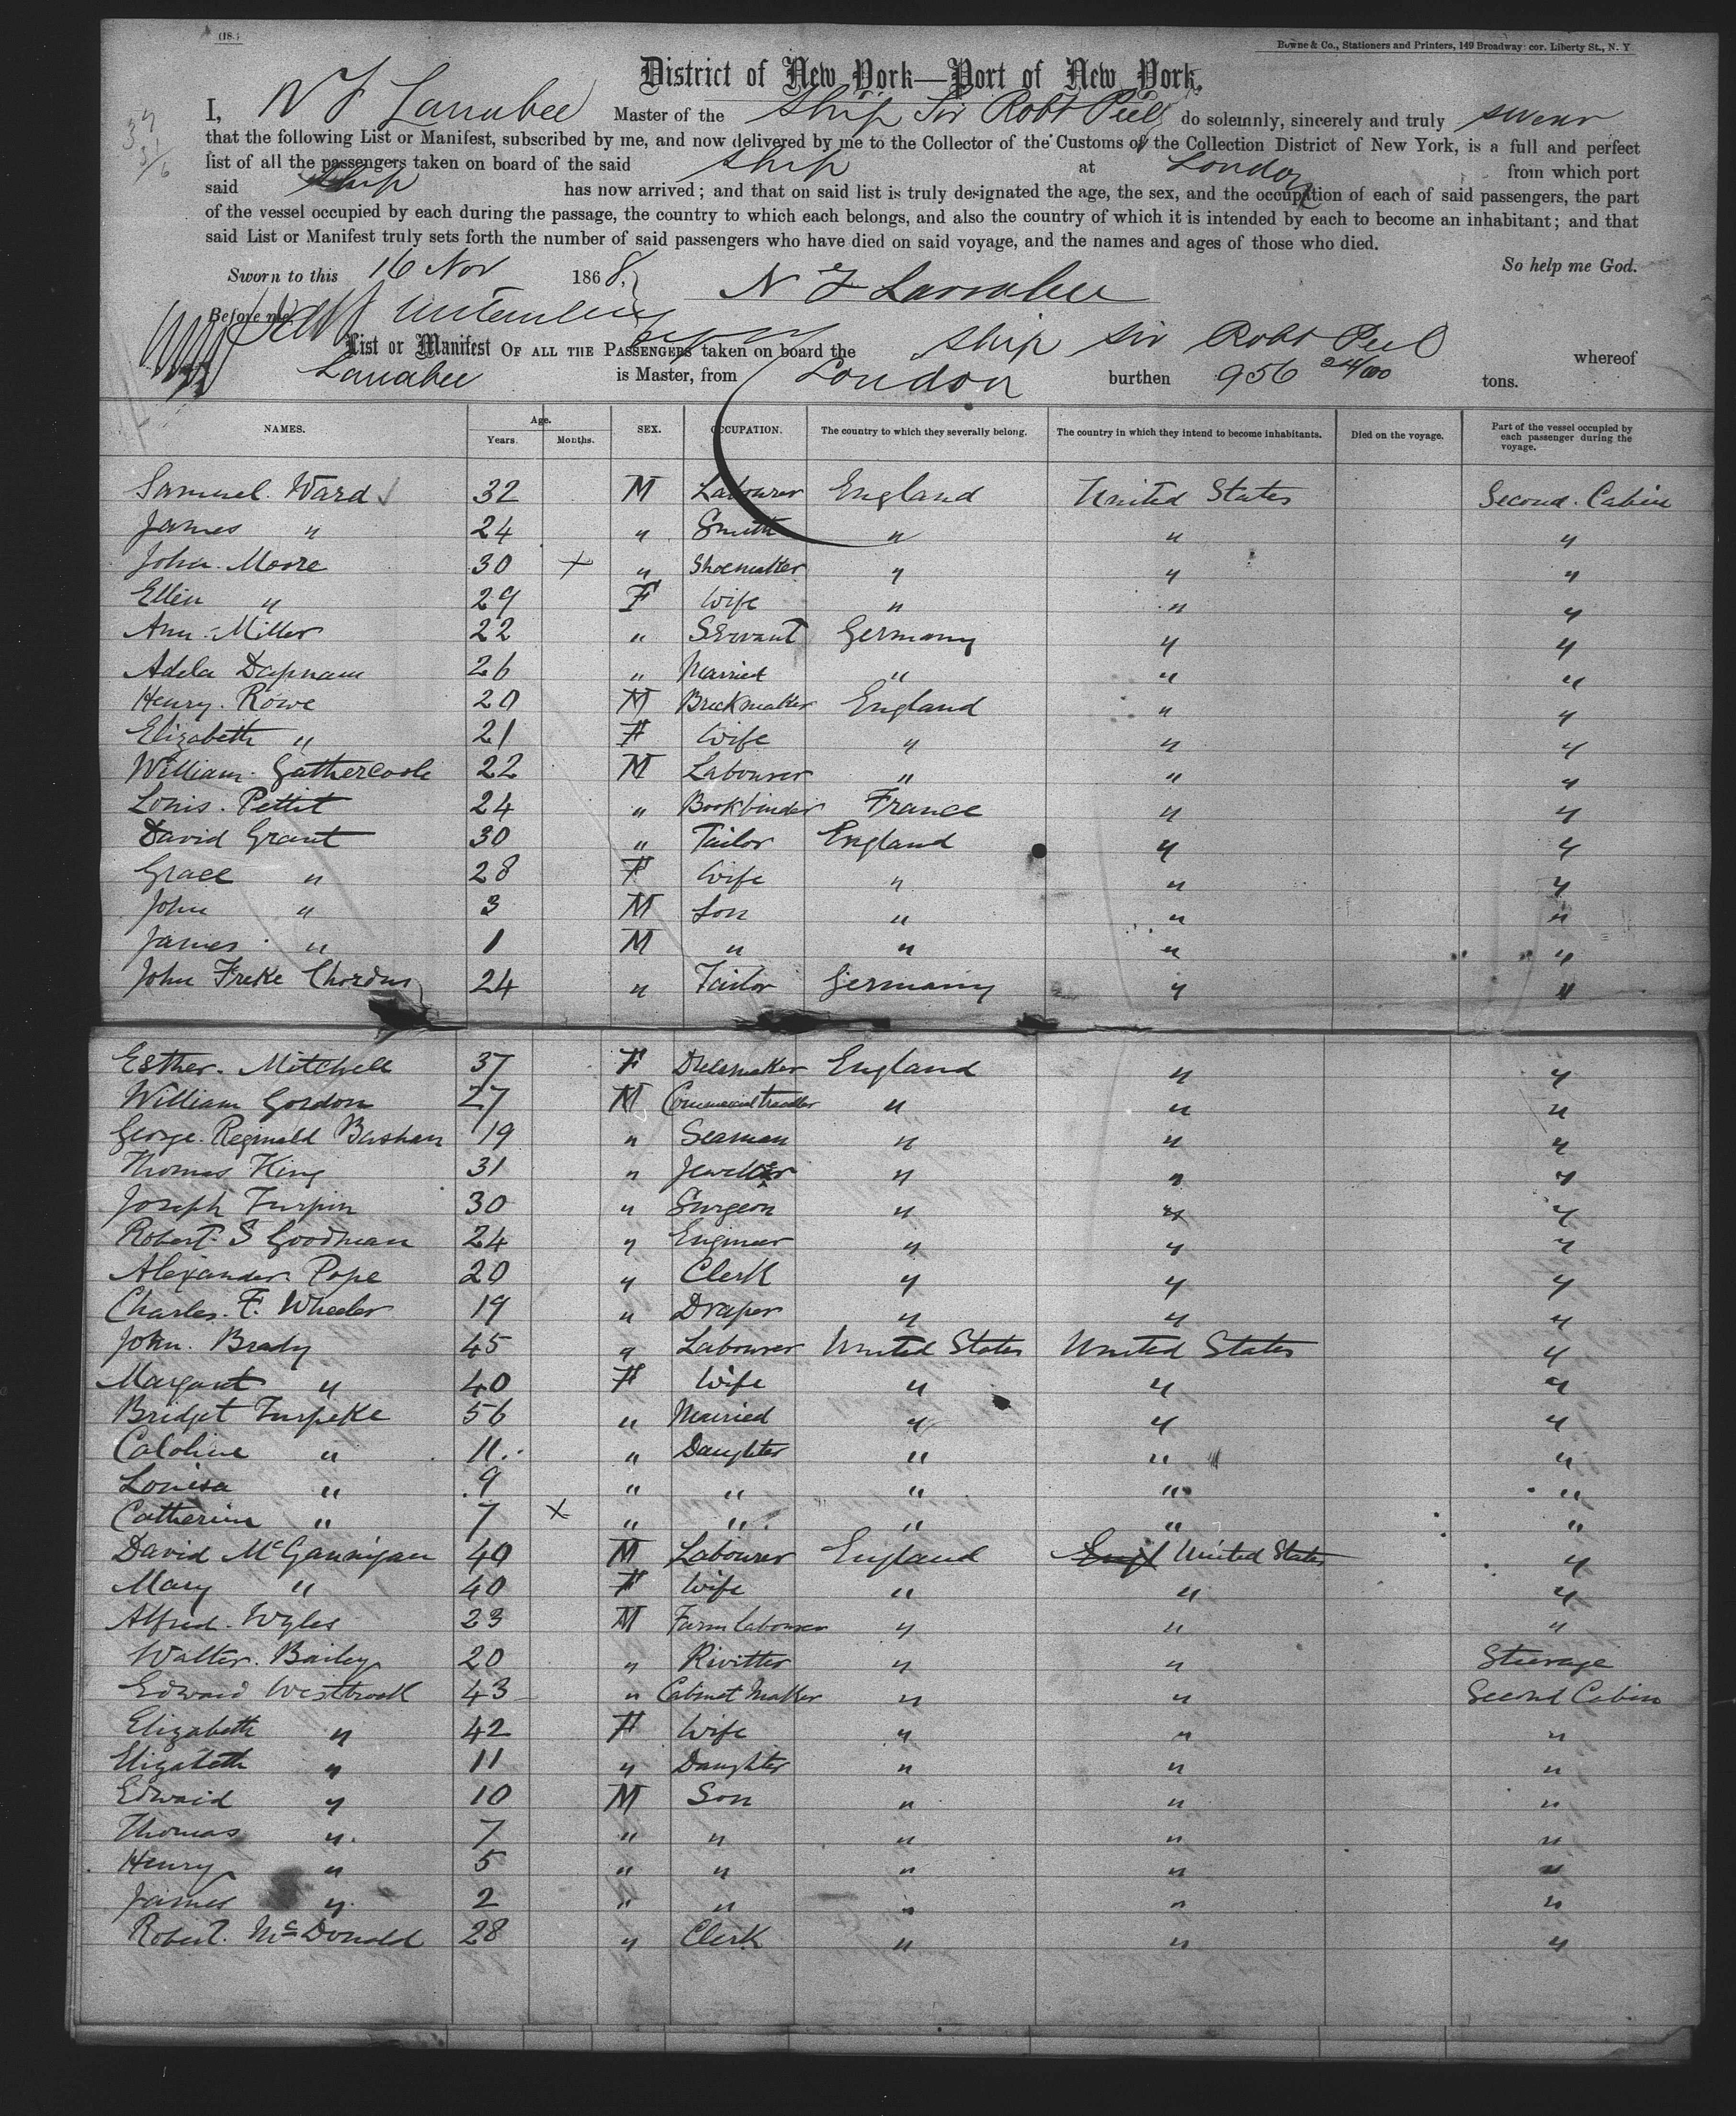 (18.)
Bowne & Co., Stationers and Printers, 149 Broadway: cor. Liberty St., N. Y
District of New York—Port of New York,
I, N F Larrabee Master of the Ship Sir Robt Peel do solemnly, sincerely and truly swear
that the following List or Manifest, subscribed by me, and now delivered by me to the Collector of the Customs of the Collection District of New York, is a full and perfect
list of all the passengers taken on board of the said Ship at London from which port
said Ship has now arrived; and that on said list is truly designated the age, the sex, and the occupation of each of said passengers, the part
of the vessel occupied by each during the passage, the country to which each belongs, and also the country of which it is intended by each to become an inhabitant; and that
said List or Manifest truly sets forth the number of said passengers who have died on said voyage, and the names and ages of those who died.
So help me God.
Sworn to this 16 Nov 1868,
N F Larrabee
Before me
List or Manifest OF ALL THE PASSENGERS taken on board the Ship Sir Robt Peel whereof
Larrabee is Master, from London burthen 956 24/100 tons.
NAMES. Age. Years. Months. SEX. OCCUPATION. The country to which they severally belong. The country in which they intend to become inhabitants. Died on the voyage. Part of the vessel occupied by each passenger during the voyage.
Samuel Ward 32 M Labourer England United States Second Cabin
James " 24 " Smith " " "
John Moore 30 + " Shoemaker " " "
Ellen " 29 F Wife " " "
Ann Miller 22 " Servant Germany " "
Adela Dapnam 26 " Married " " "
Henry Rowe 20 M Brickmaker England " "
Elizabeth " 21 F Wife " " "
William Gathercole 22 M Labourer " " "
Louis Pettit 24 " Bookbinder France " "
David Grant 30 " Tailor England " "
Grace " 28 F Wife " " "
John " 3 M Son " " "
James " 1 M " " " "
John Freke Chordus 24 " Tailor Germany " "
Esther Mitchell 37 F Dressmaker England " "
William Gordon 27 M Commercial Traveller " " "
George Reginald Basham 19 " Seaman " " "
Thomas King 31 " Jeweller " " "
Joseph Turpin 30 " Surgeon " " "
Robert S Goodman 24 " Engineer " " "
Alexander Pope 20 " Clerk " " "
Charles F. Wheeler 19 " Draper " " "
John Brady 45 " Labourer United States United States "
Margaret " 40 F Wife " " "
Bridget Turpeke 56 " Married " " "
Caroline " 11 " Daughter " " "
Louisa " 9 " " " " "
Catherine " 7 + " " " " "
David McGannigan 40 M Labourer England Engl United States "
Mary " 40 F Wife " " "
Alfred Wyles 23 M Farm Labourer " " "
Walter Bailey 20 " Rivitter " " Steerage
Edward Westbrook 43 " Cabinet Maker " " Second Cabin
Elizabeth " 42 F Wife " " "
Elizabeth " 11 " Daughter " " "
Edward " 10 M Son " " "
Thomas " 7 " " " " "
Henry " 5 " " " " "
James " 2 " " " " "
Robert McDonald 28 " Clerk " " "